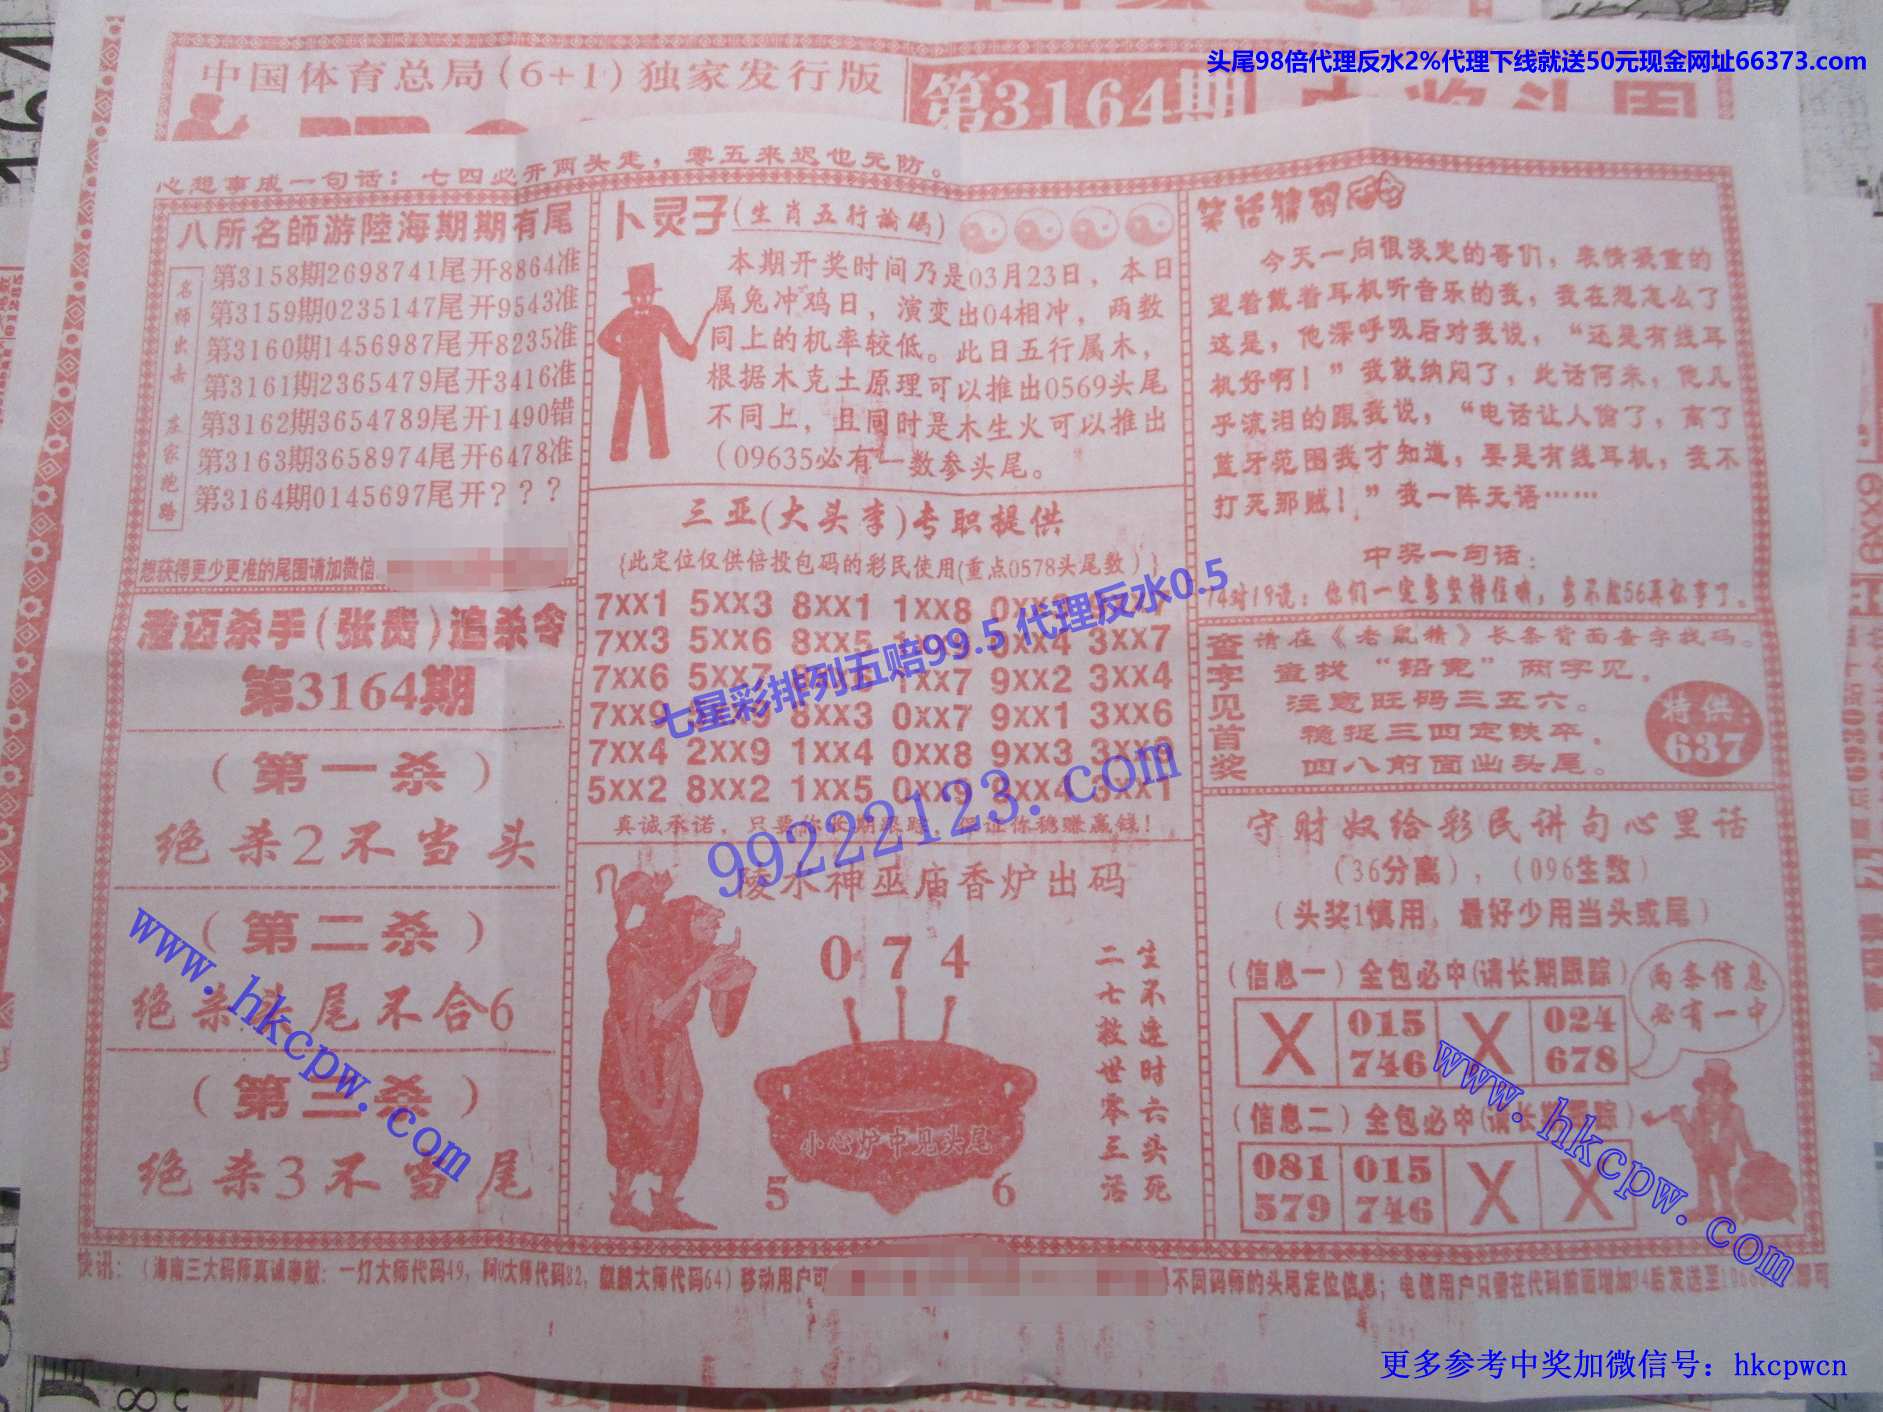 头尾98倍代理反水2%代理下线就送50元现金网址66373.com
中国体育总局(6+1)独家发行版
第3164期
心想事成一句话：七四必开两头走，零五来迟也无防。
八所名師游陸海期期有尾
名师出击 在家抱路
第3158期2698741尾开8864准
第3159期0235147尾开9543准
第3160期1456987尾开8235准
第3161期2365479尾开3416准
第3162期3654789尾开1490错
第3163期3658974尾开6478准
第3164期0145697尾开？？？
想获得更少更准的尾围请加微信
澄迈杀手(张贵)追杀令
第3164期
(第一杀)
绝杀2不当头
(第二杀)
绝杀头尾不合6
(第三杀)
绝杀3不当尾
卜灵子(生肖五行論碼)
本期开奖时间乃是03月23日，本日
属兔冲鸡日，演变出04相冲，两数
同上的机率较低。此日五行属木，
根据木克土原理可以推出0569头尾
不同上，且同时是木生火可以推出
(09635必有一数参头尾。
三亚(大头李)专职提供
{此定位仅供倍投包码的彩民使用(重点0578头尾数)}
7XX1 5XX3 8XX1 1XX8
7XX3 5XX6 8XX5 9XX4 3XX7
7XX6 5XX7 1XX7 9XX2 3XX4
7XX9 8XX3 0XX7 9XX1 3XX6
7XX4 2XX9 1XX4 0XX8 9XX3
5XX2 8XX2 1XX5 0XX9 3XX1
七星彩排列五赔99.5 代理反水0.5
99222123.com
陵水神巫庙香炉出码
0 7 4
小心炉中见头尾
5 6
生不逢时六头死
二七救世零三活
笑话猜码
今天一向很淡定的哥们，表情凝重的
望着戴着耳机听音乐的我，我在想怎么了
这是，他深呼吸后对我说，“还是有线耳
机好啊！”我就纳闷了，此话何来，他几
乎流泪的跟我说，“电话让人偷了，离了
蓝牙范围我才知道，要是有线耳机，我不
打死那贼！”我一阵无语……
中奖一句话：
查字见首奖
请在《老鼠精》长条背面查字找码。
查找“铅宽”两字见，
注意旺码三五六。
稳捉三四定铁卒，
四八前面出头尾。
特供：
637
守财奴给彩民讲句心里话
(36分离)，(096生数)
(头奖1慎用，最好少用当头或尾)
(信息一)全包必中(请长期跟踪)
X 015 746 X 024 678
两条信息
必有一中
(信息二)全包必中(请长期跟踪)
081 579 015 746 X X
快讯：(海南三大码师真诚奉献：一灯大师代码49，阿Q大师代码82，麒麟大师代码64)移动用户可
不同码师的头尾定位信息；电信用户只需在代码前面增加94后发送至
www.hkcpw.com
www.hkcpw.com
更多参考中奖加微信号：hkcpwcn